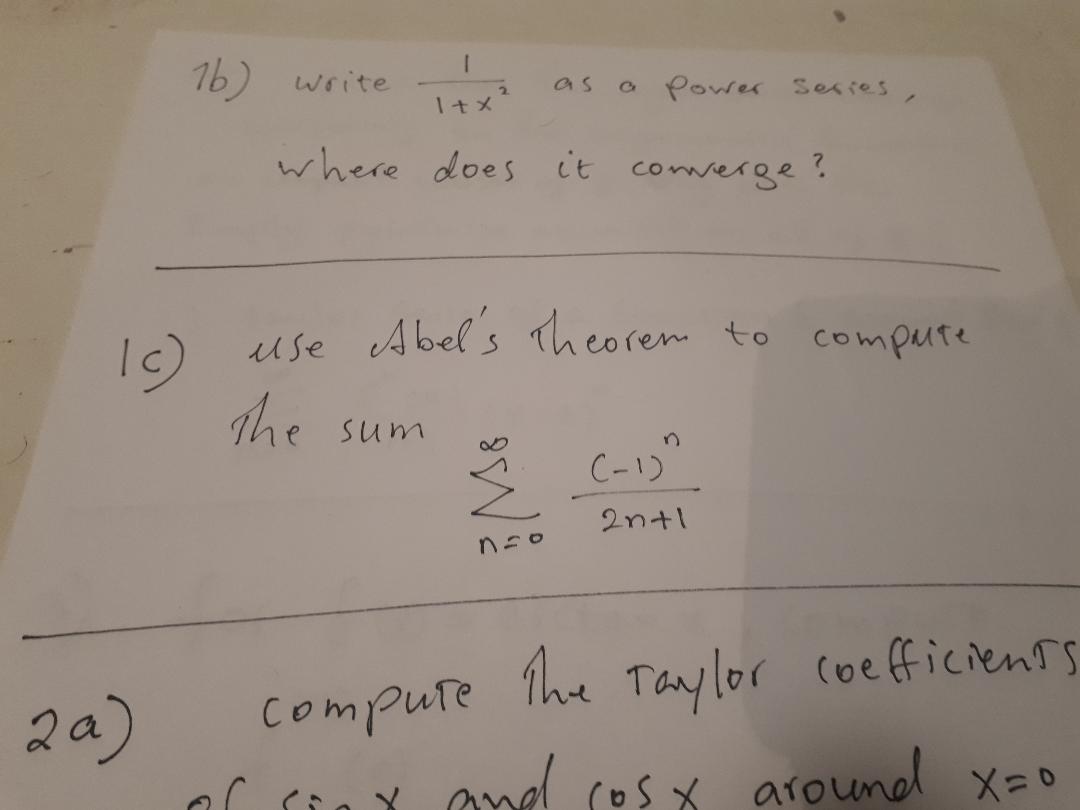 1b) write 1/(1+x²) as a power series,
where does it converge?
1c) use Abel's Theorem to compute
The sum
∑_{n=0}^{∞} (-1)ⁿ/(2n+1)
2a) compute the Taylor coefficients
of sin x and cos x around x=0